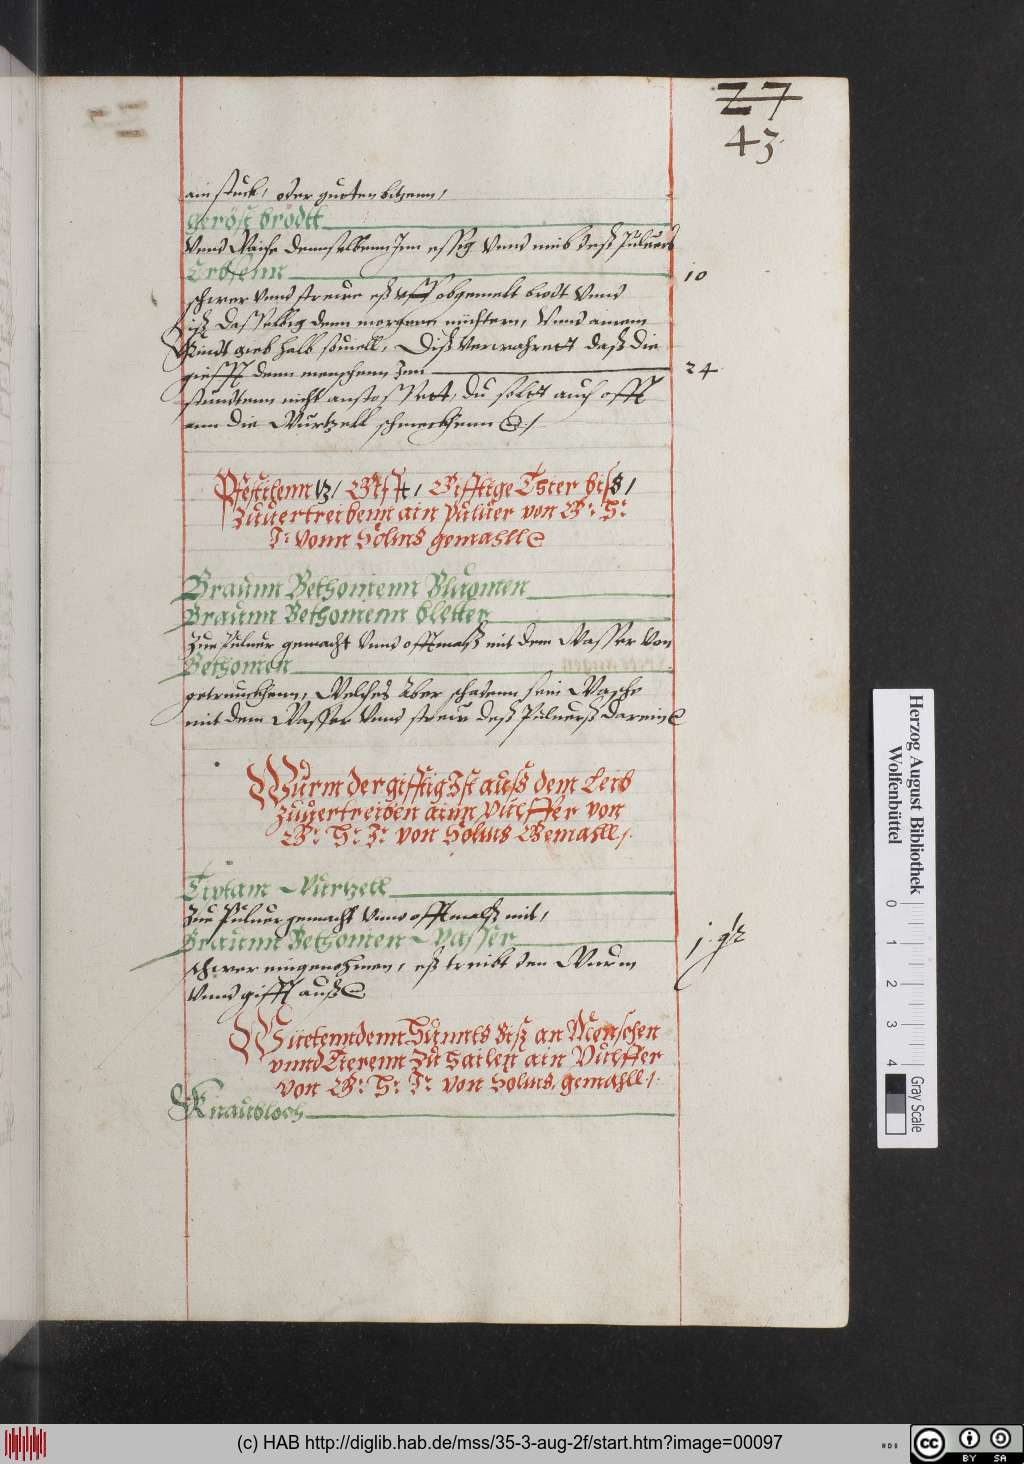 27
43.
ain stuck, oder gueten bitzenn,
geröst brodtt
Vnnd Waich dennselbenn Inn essig vnnd nimb deß Puluers
Erbsenn 10
schwer vnnd strewe eß vff obgemelt brodt vnnd
iß dasselbig denn morgenn nüchtern, Vnnd ainem
Kindt gieb halb souiell, Diß verwahrett daß die
giefft denn menschenn Inn 24
stundtenn nicht anstossett, du solst auch offt
ann die Wurtzell schmeckhenn
Pestilenntz, Gifft, Gifftige Thier biß,
Zuuertreibenn ain puluer von G: H:
J: vonn Solms gemahll
Braunn Bethonienn Bluomen
Braunn Bethonienn bletter
Zue Puluer gemacht vnnd offtmalß mit dem Wasser von
Bethonien
getrunckhenn, Welches Aber schadenn sein Wasche
mit dem Wasser vnnd strew deß Puluerß darein
Wurm der gifftig Ist auß dem Leib
Zuuertreiben ainn Pulffer von
G: H: J: von Solms Gemahll,
Tiptam Wurtzell
Zue Puluer gemacht vnnd offtmalß mit,
Braunn Bethonien Wasser j. qt
schwer eingenohmen, eß treibt den Wurm
vnnd gifft auß
Wüetenndenn Hunnts Biß an Menschen
vnnd Tierenn Zu hailen ain Pulffer
von G: H: J: von Solms, gemahll,
Knaubloch
Herzog August Bibliothek
Wolfenbüttel
0 1 2 3 4
Gray Scale
(c) HAB http://diglib.hab.de/mss/35-3-aug-2f/start.htm?image=00097
cc BY SA